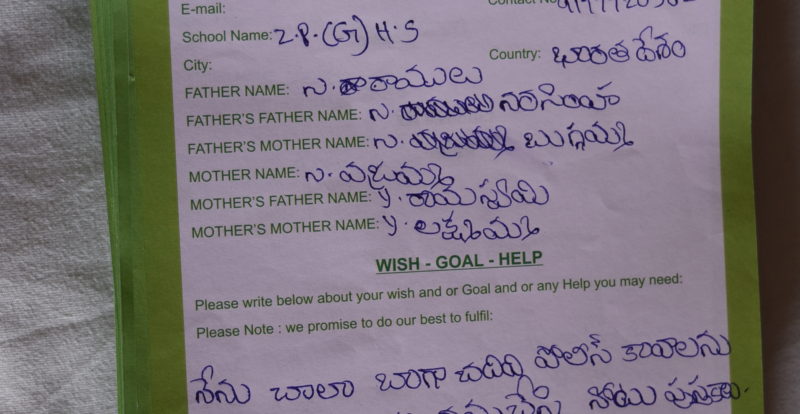 E-mail:
School Name: Z.P.(G) H.S
City: Country: భారత దేశం
FATHER NAME: న. రాములు
FATHER'S FATHER NAME: న. నరసింహ
FATHER'S MOTHER NAME: న. బుగ్గమ్మ
MOTHER NAME: న. వజ్రమ్మ
MOTHER'S FATHER NAME: y. రామస్వామి
MOTHER'S MOTHER NAME: y. లక్ష్మమ్మ
WISH - GOAL - HELP
Please write below about your wish and or Goal and or any Help you may need:
Please Note : we promise to do our best to fulfil:
నేను చాలా బాగా చదివి పోలిస్ కావాలను
నోటు పుస్తకాలు.